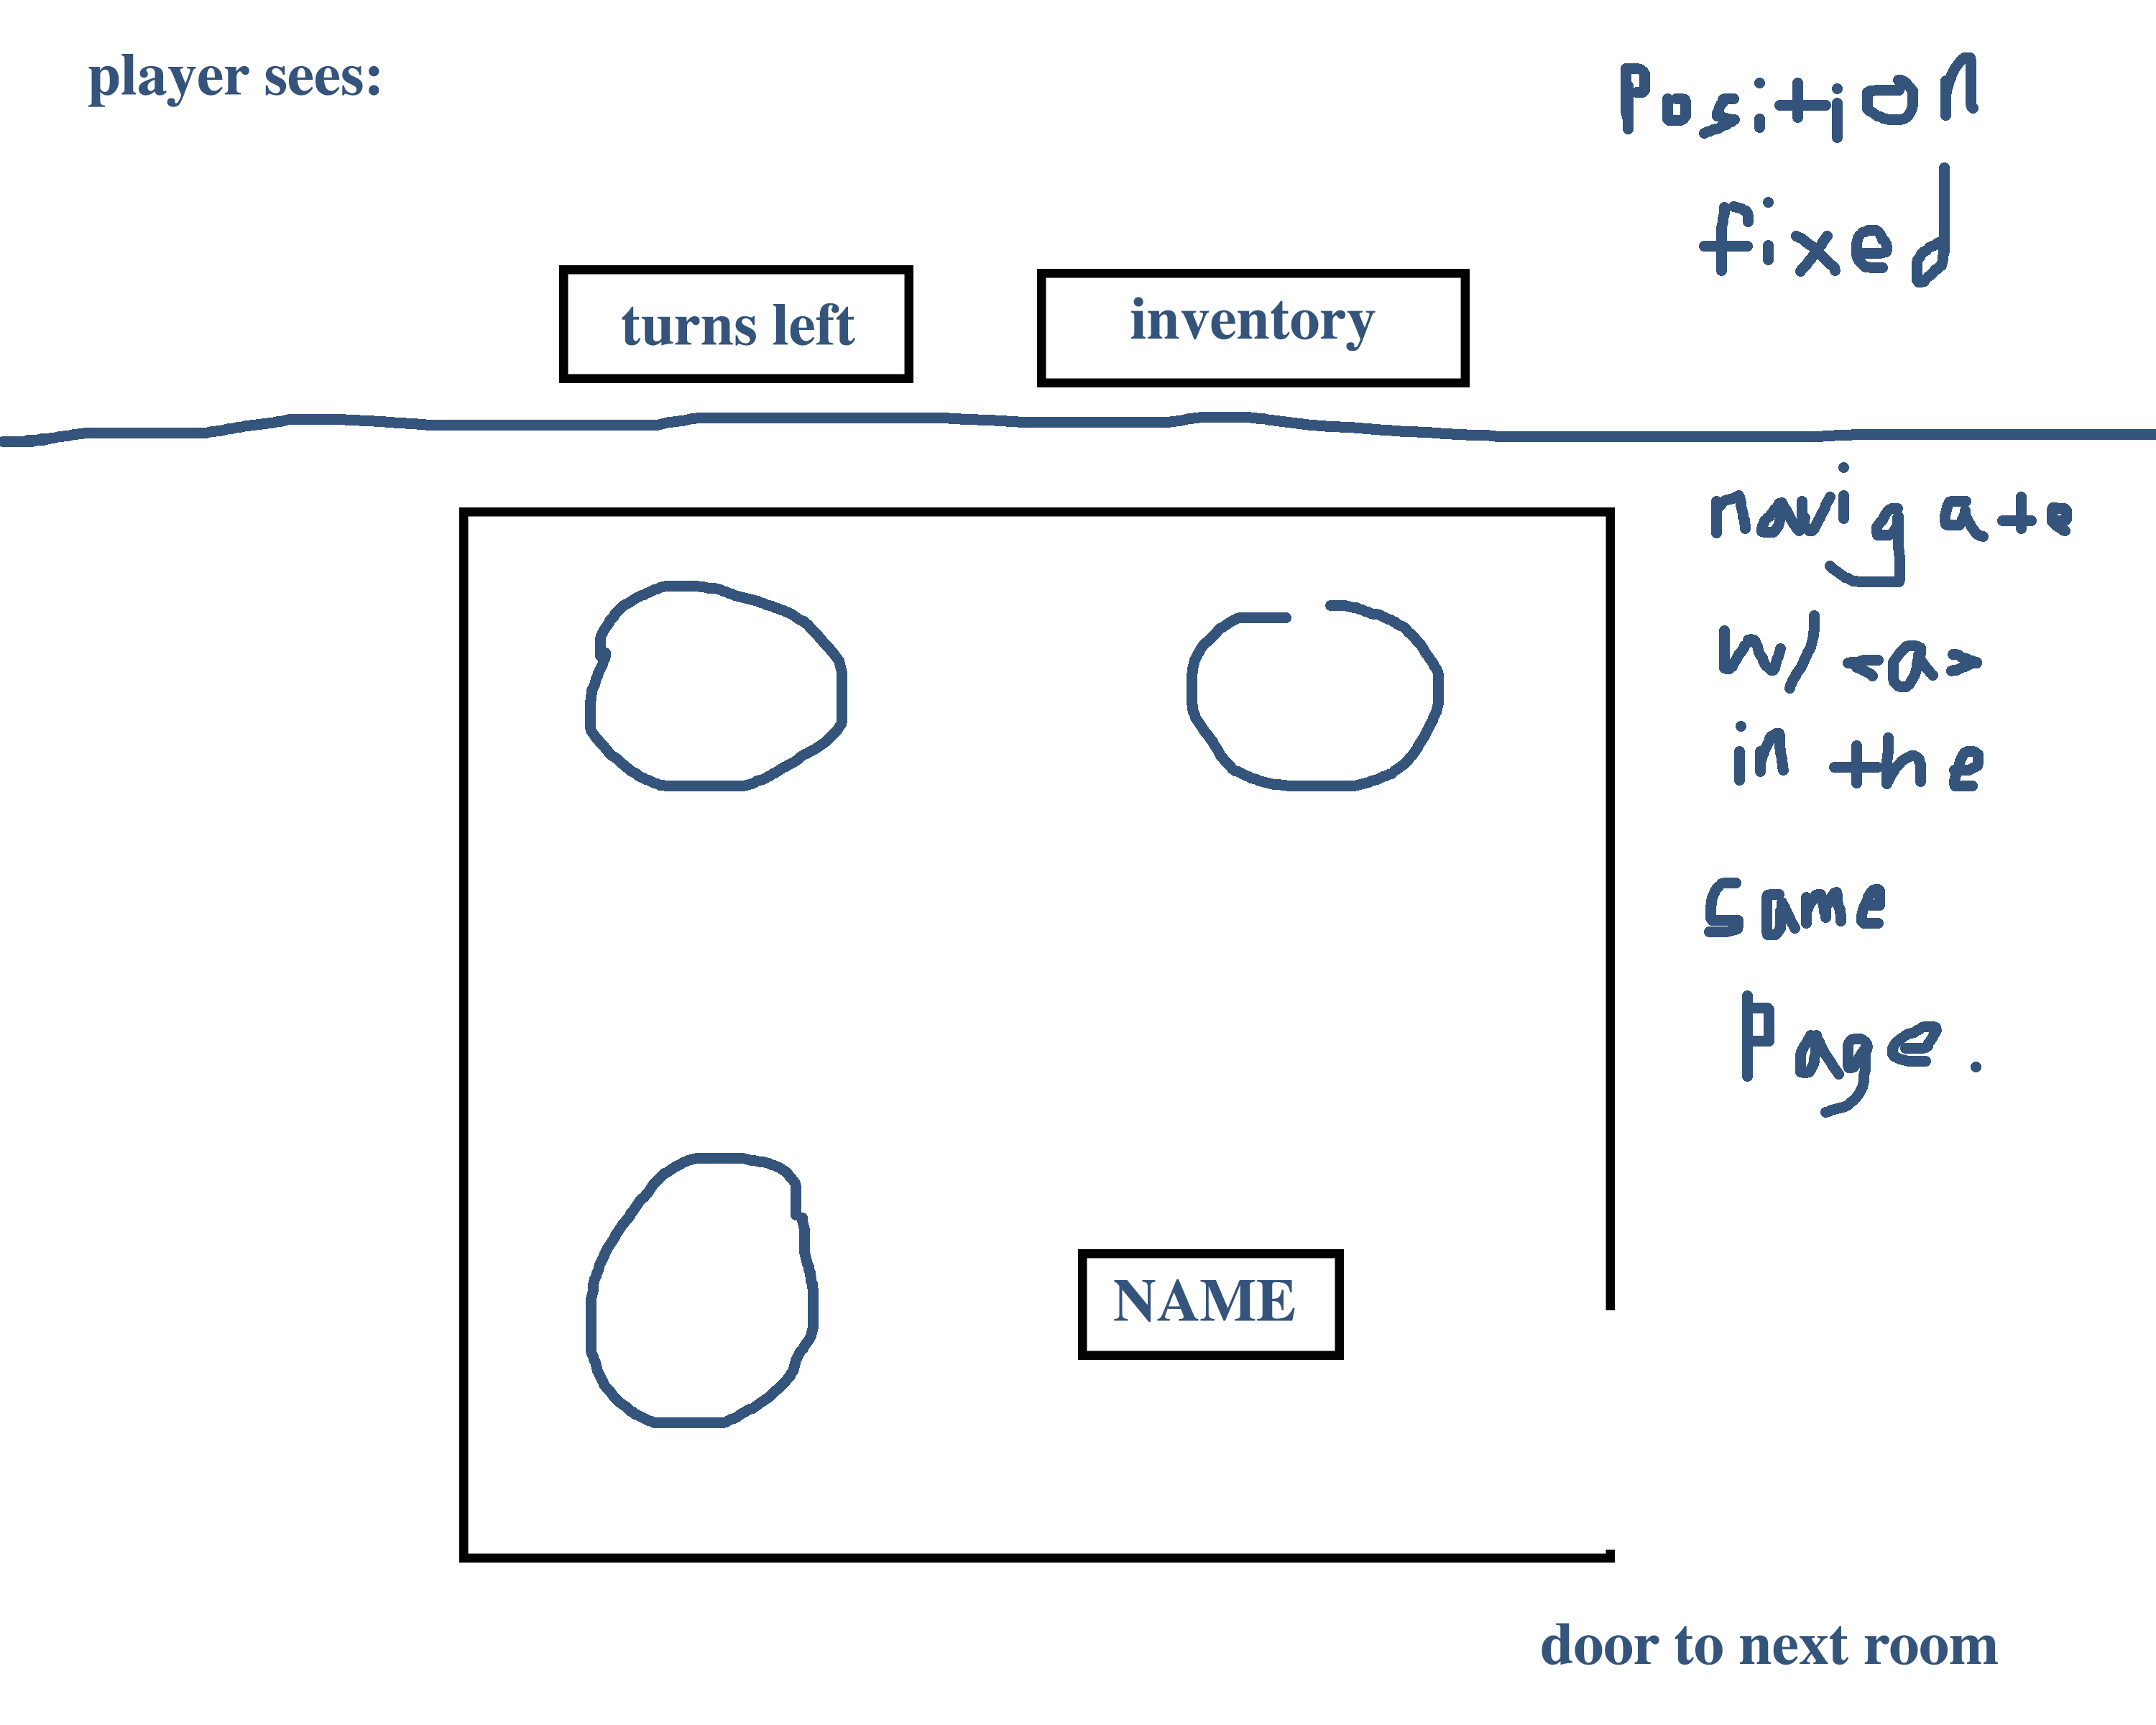 player sees:
Position
fixed
turns left
inventory
navigate
w/ <a>
in the
same
page.
NAME
door to next room